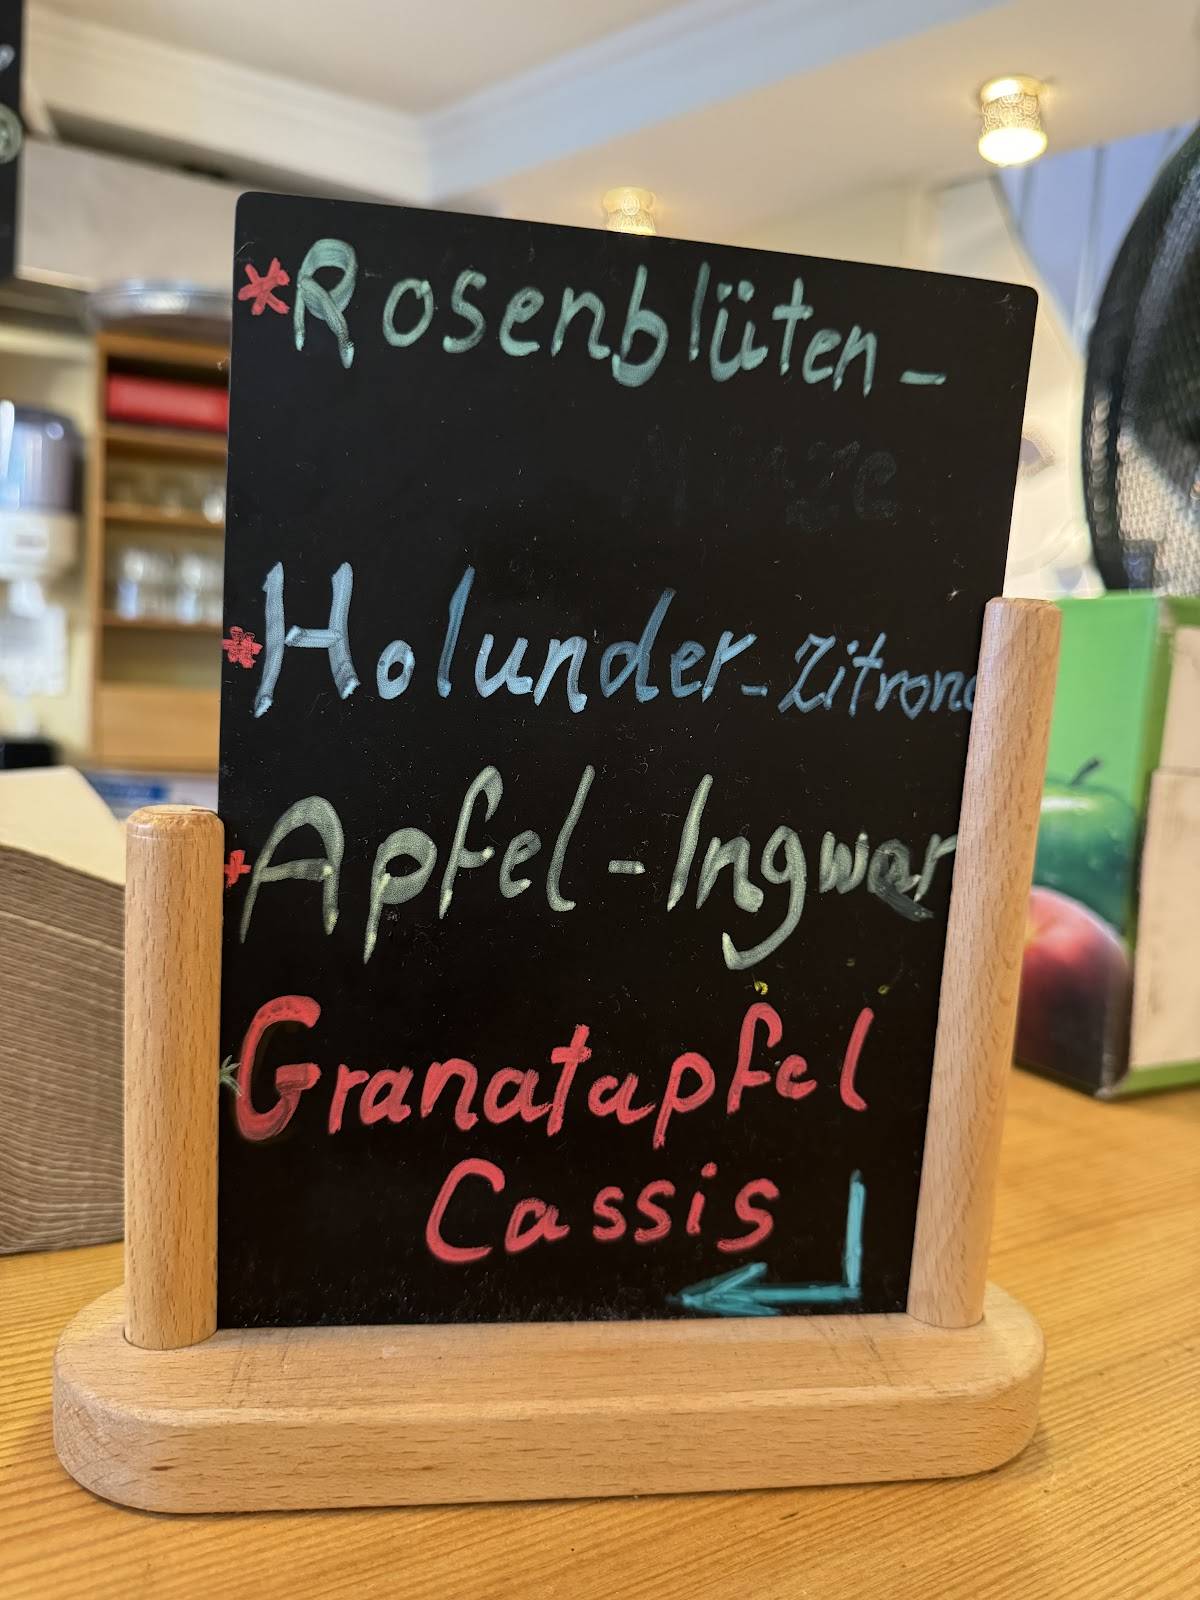 *Rosenblüten-
*Holunder-Zitrone
*Apfel-Ingwer
*Granatapfel
Cassis